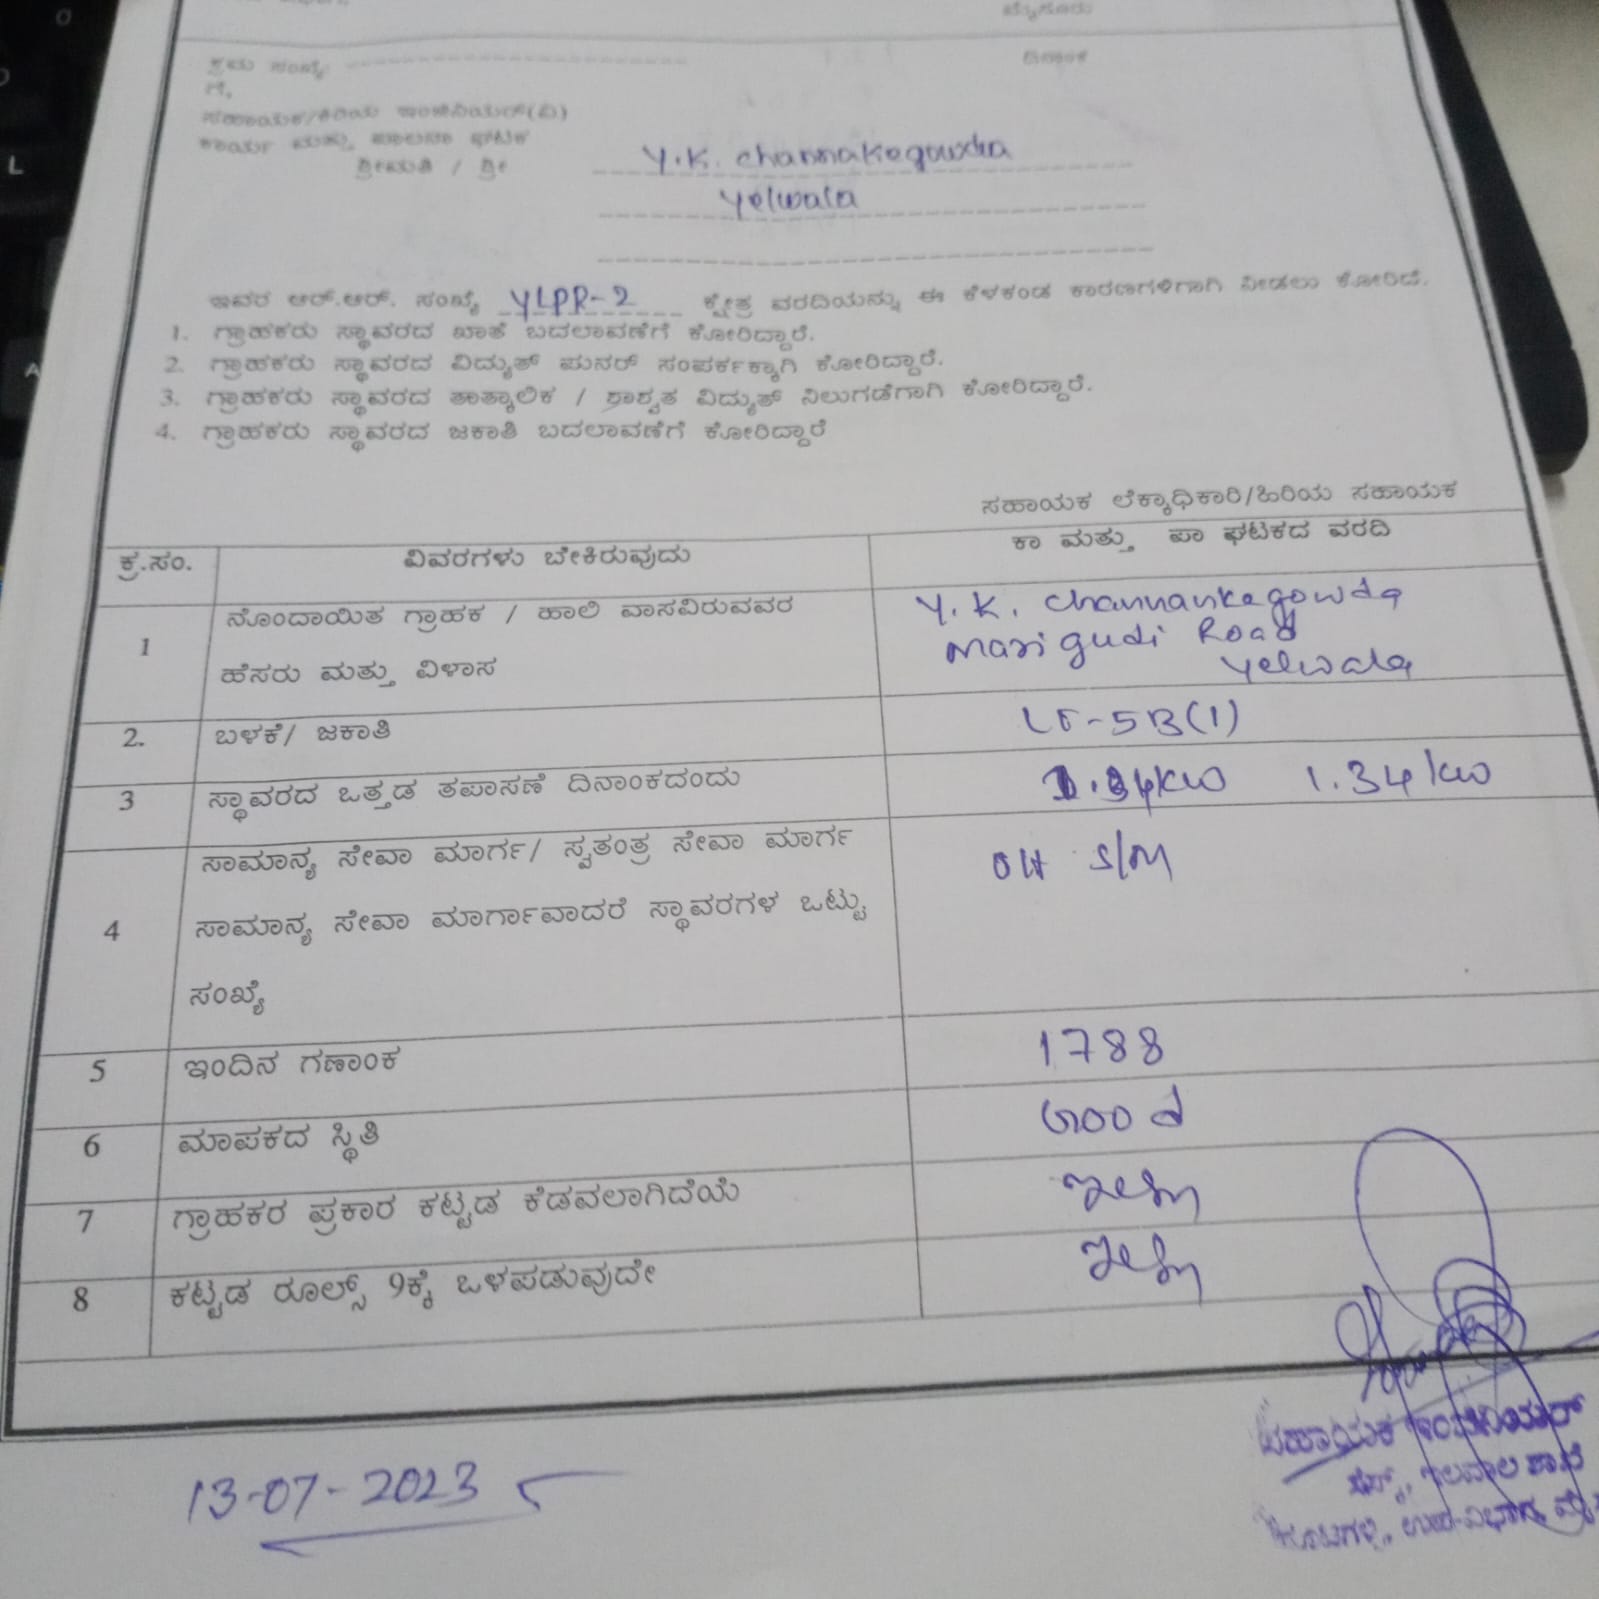 ಮೈಸೂರು
ಕ್ರಮ ಸಂಖ್ಯೆ: ದಿನಾಂಕ
ಗೆ,
ಸಹಾಯಕ/ಕಿರಿಯ ಇಂಜಿನಿಯರ್(ವಿ)
ಕಾರ್ಯ ಮತ್ತು ಪಾಲನಾ ಘಟಕ
ಶ್ರೀಮತಿ / ಶ್ರೀ Y.K. channakegowda
Yelwala
ಇವರ ಆರ್.ಆರ್. ಸಂಖ್ಯೆ YLPR-2 ಕ್ಷೇತ್ರ ವರದಿಯನ್ನು ಈ ಕೆಳಕಂಡ ಕಾರಣಗಳಿಗಾಗಿ ನೀಡಲು ಕೋರಿದೆ.
1. ಗ್ರಾಹಕರು ಸ್ಥಾವರದ ಖಾತೆ ಬದಲಾವಣೆಗೆ ಕೋರಿದ್ದಾರೆ.
2. ಗ್ರಾಹಕರು ಸ್ಥಾವರದ ವಿದ್ಯುತ್ ಪುನರ್ ಸಂಪರ್ಕಕ್ಕಾಗಿ ಕೋರಿದ್ದಾರೆ.
3. ಗ್ರಾಹಕರು ಸ್ಥಾವರದ ತಾತ್ಕಾಲಿಕ / ಶಾಶ್ವತ ವಿದ್ಯುತ್ ನಿಲುಗಡೆಗಾಗಿ ಕೋರಿದ್ದಾರೆ.
4. ಗ್ರಾಹಕರು ಸ್ಥಾವರದ ಜಕಾತಿ ಬದಲಾವಣೆಗೆ ಕೋರಿದ್ದಾರೆ
ಸಹಾಯಕ ಲೆಕ್ಕಾಧಿಕಾರಿ/ಹಿರಿಯ ಸಹಾಯಕ
ಕ್ರ.ಸಂ. ವಿವರಗಳು ಬೇಕಿರುವುದು ಕಾ ಮತ್ತು ಪಾ ಘಟಕದ ವರದಿ
1 ನೊಂದಾಯಿತ ಗ್ರಾಹಕ / ಹಾಲಿ ವಾಸವಿರುವವರ Y.K. Channankegowda
ಹೆಸರು ಮತ್ತು ವಿಳಾಸ Marigudi Road
Yelwala
2. ಬಳಕೆ/ ಜಕಾತಿ LT-5B(1)
3 ಸ್ಥಾವರದ ಒತ್ತಡ ತಪಾಸಣೆ ದಿನಾಂಕದಂದು 1.34kw 1.34kw
ಸಾಮಾನ್ಯ ಸೇವಾ ಮಾರ್ಗ/ ಸ್ವತಂತ್ರ ಸೇವಾ ಮಾರ್ಗ OH S/M
4 ಸಾಮಾನ್ಯ ಸೇವಾ ಮಾರ್ಗಾವಾದರೆ ಸ್ಥಾವರಗಳ ಒಟ್ಟು
ಸಂಖ್ಯೆ
5 ಇಂದಿನ ಗಣಾಂಕ 1788
6 ಮಾಪಕದ ಸ್ಥಿತಿ Good
7 ಗ್ರಾಹಕರ ಪ್ರಕಾರ ಕಟ್ಟಡ ಕೆಡವಲಾಗಿದೆಯೆ
8 ಕಟ್ಟಡ ರೂಲ್ಸ್ 9ಕ್ಕೆ ಒಳಪಡುವುದೇ
13-07-2023
ಸಹಾಯಕ ಇಂಜಿನಿಯರ್
ಸೆಸ್ಕ್, ಇಲವಾಲ ಶಾಖೆ
ಹೂಟಗಳ್ಳಿ, ಉಪ-ವಿಭಾಗ,